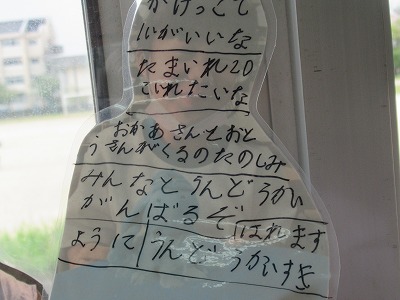 かけっこで
1いがいいな
たまいれ20
こいれたいな
おかあさんとおと
うさんがくるのたのしみ
みんなとうんどうかい
がんばるぞ はれます
ように うんどうかいすき